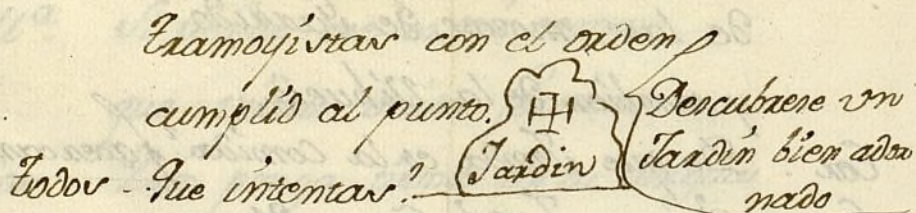 tramoyistas con el orden
cumplid al punto.
Jardin
Descubrese vn
Jardin bien ador
nado
todos - Que intentas?